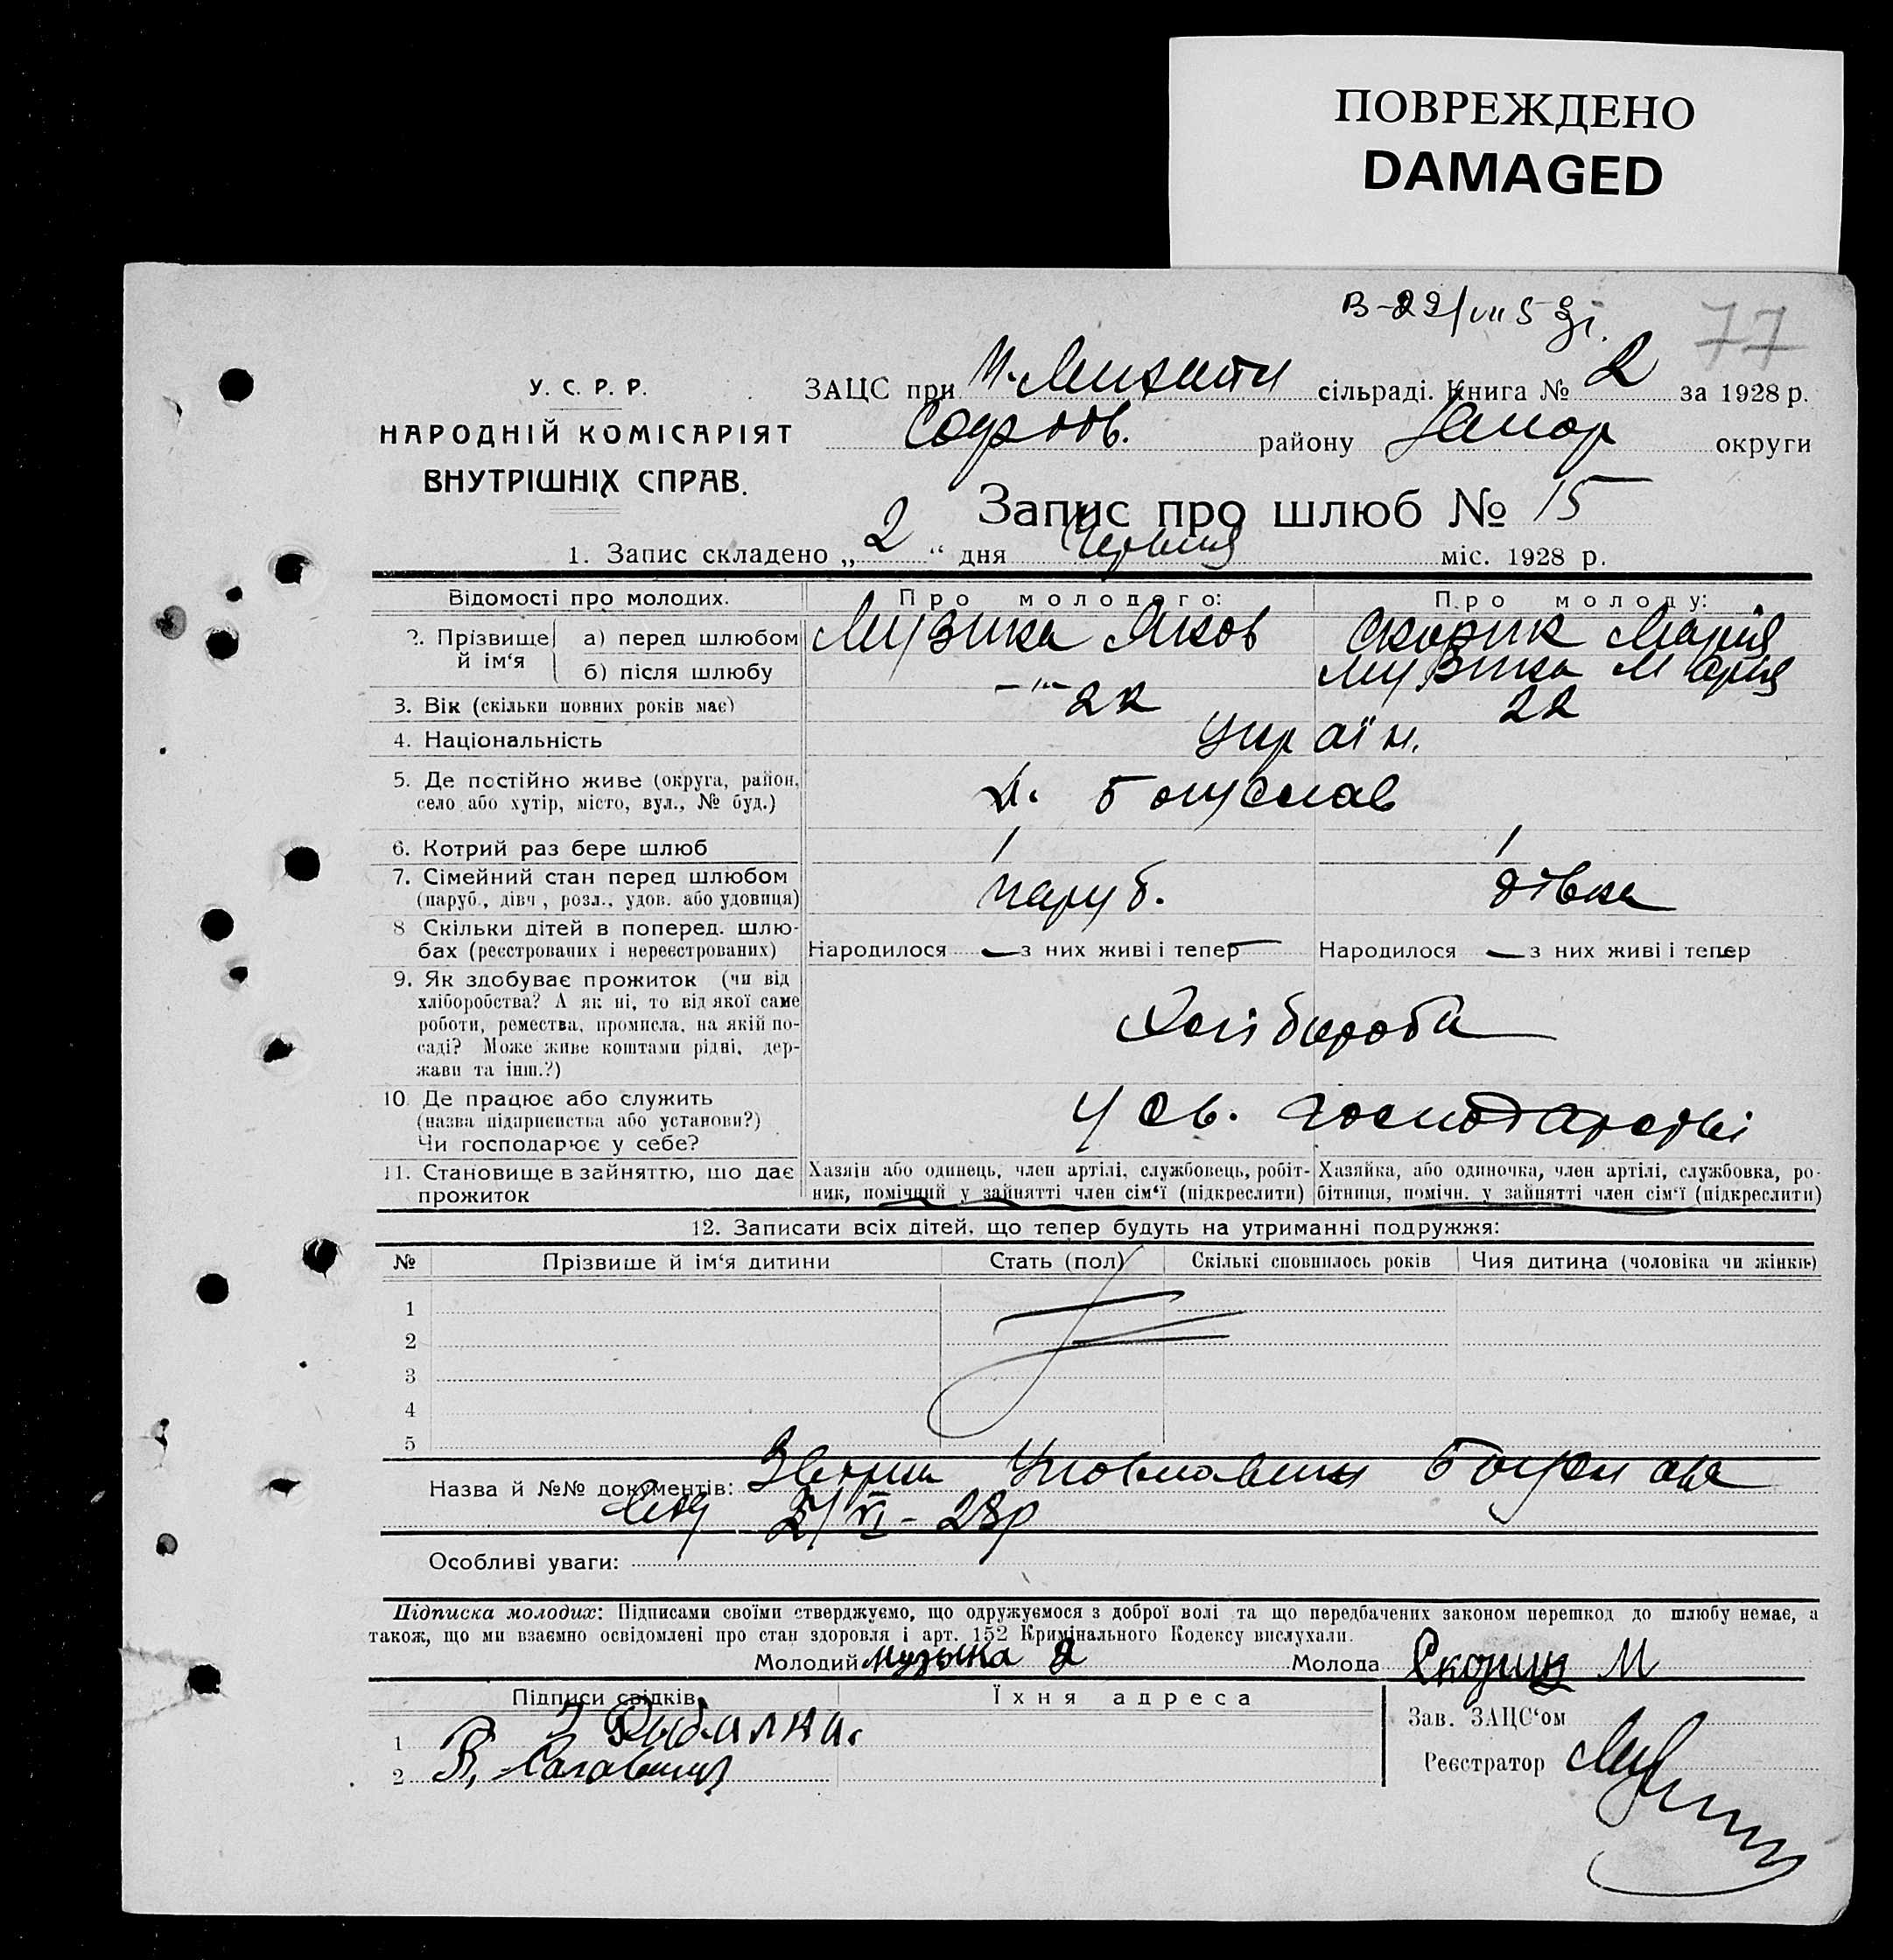 ПОВРЕЖДЕНО
DAMAGED
77
У. С. Р. Р.
НАРОДНІЙ КОМІСАРІЯТ
ВНУТРІШНІХ СПРАВ.
ЗАЦС при сільраді. Книга № 2 за 1928 р.
району Запор округи
Запис про шлюб № 15
1. Запис складено „ 2 “ дня Червня міс. 1928 р.
Відомості про молодих. Про молодого: Про молоду:
2. Прізвище й ім‘я а) перед шлюбом Музика Яков Скорик Марія
б) після шлюбу –"– Музика Марія
3. Вік (скільки повних років має) 22 22
4. Національність Україн.
5. Де постійно живе (округа, район,
село або хутір, місто, вул., № буд.) Богуслав
6. Котрий раз бере шлюб 1 1
7. Сімейний стан перед шлюбом
(паруб., дівч., розл., удов. або удовиця) паруб. дівка
8 Скільки дітей в поперед. шлю-
бах (реєстрованих і нереєстрованих) Народилося — з них живі і тепер — Народилося — з них живі і тепер
9. Як здобуває прожиток (чи від
хліборобства? А як ні, то від якої саме
роботи, ремества, промисла, на якій по-
саді? Може живе коштами рідні, дер-
жави та інш.?) Хлібороби
10. Де працює або служить
(назва підприємства або установи?)
Чи господарює у себе? у св. господарстві
11. Становище в зайняттю, що дає
прожиток
Хазяїн або одинець, член артілі, службовець, робіт-
ник, помічний у зайнятті член сім‘ї (підкреслити)
Хазяйка, або одиночка, член артілі, службовка, ро-
бітниця, помічн. у зайнятті член сім‘ї (підкреслити)
12. Записати всіх дітей, що тепер будуть на утриманні подружжя:
№ Прізвише й ім‘я дитини Стать (пол) Скількі сповнилось років Чия дитина (чоловіка чи жінки)
1
2
3
4
5
Назва й №№ документів:
2/VI - 28р
Особливі уваги:
Підписка молодих: Підписами своїми стверджуємо, що одружуємося з доброї волі та що передбачених законом перешкод до шлюбу немає, а
також, що ми взаємно освідомлені про стан здоровля і арт. 152 Кримінального Кодексу вислухали.
Молодий Музыка Я Молода Скорик М
Підписи свідків Їхня адреса
1 Рыбалка.
2 В.
Зав. ЗАЦС‘ом
Реєстратор